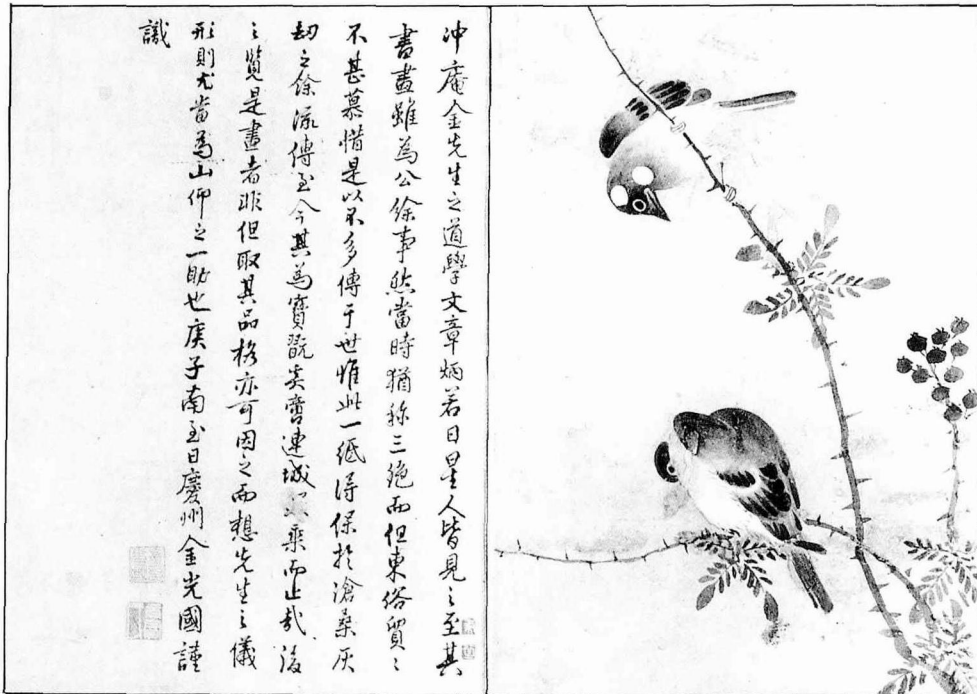 冲庵金先生之道學文章炳若日星人皆見之至其
書畫雖為公餘事然當時猶称三絶而但東俗貿々
不甚慕惜是以不多傳于世惟此一紙得保於滄桒灰
劫之餘流傳至今其為寶翫奚啻連城 乘而止哉後
之覽是畫者非但取其品格亦可因之而想先生之儀
形則尤當為山仰之一助也庚子南至日慶州金光國謹
識